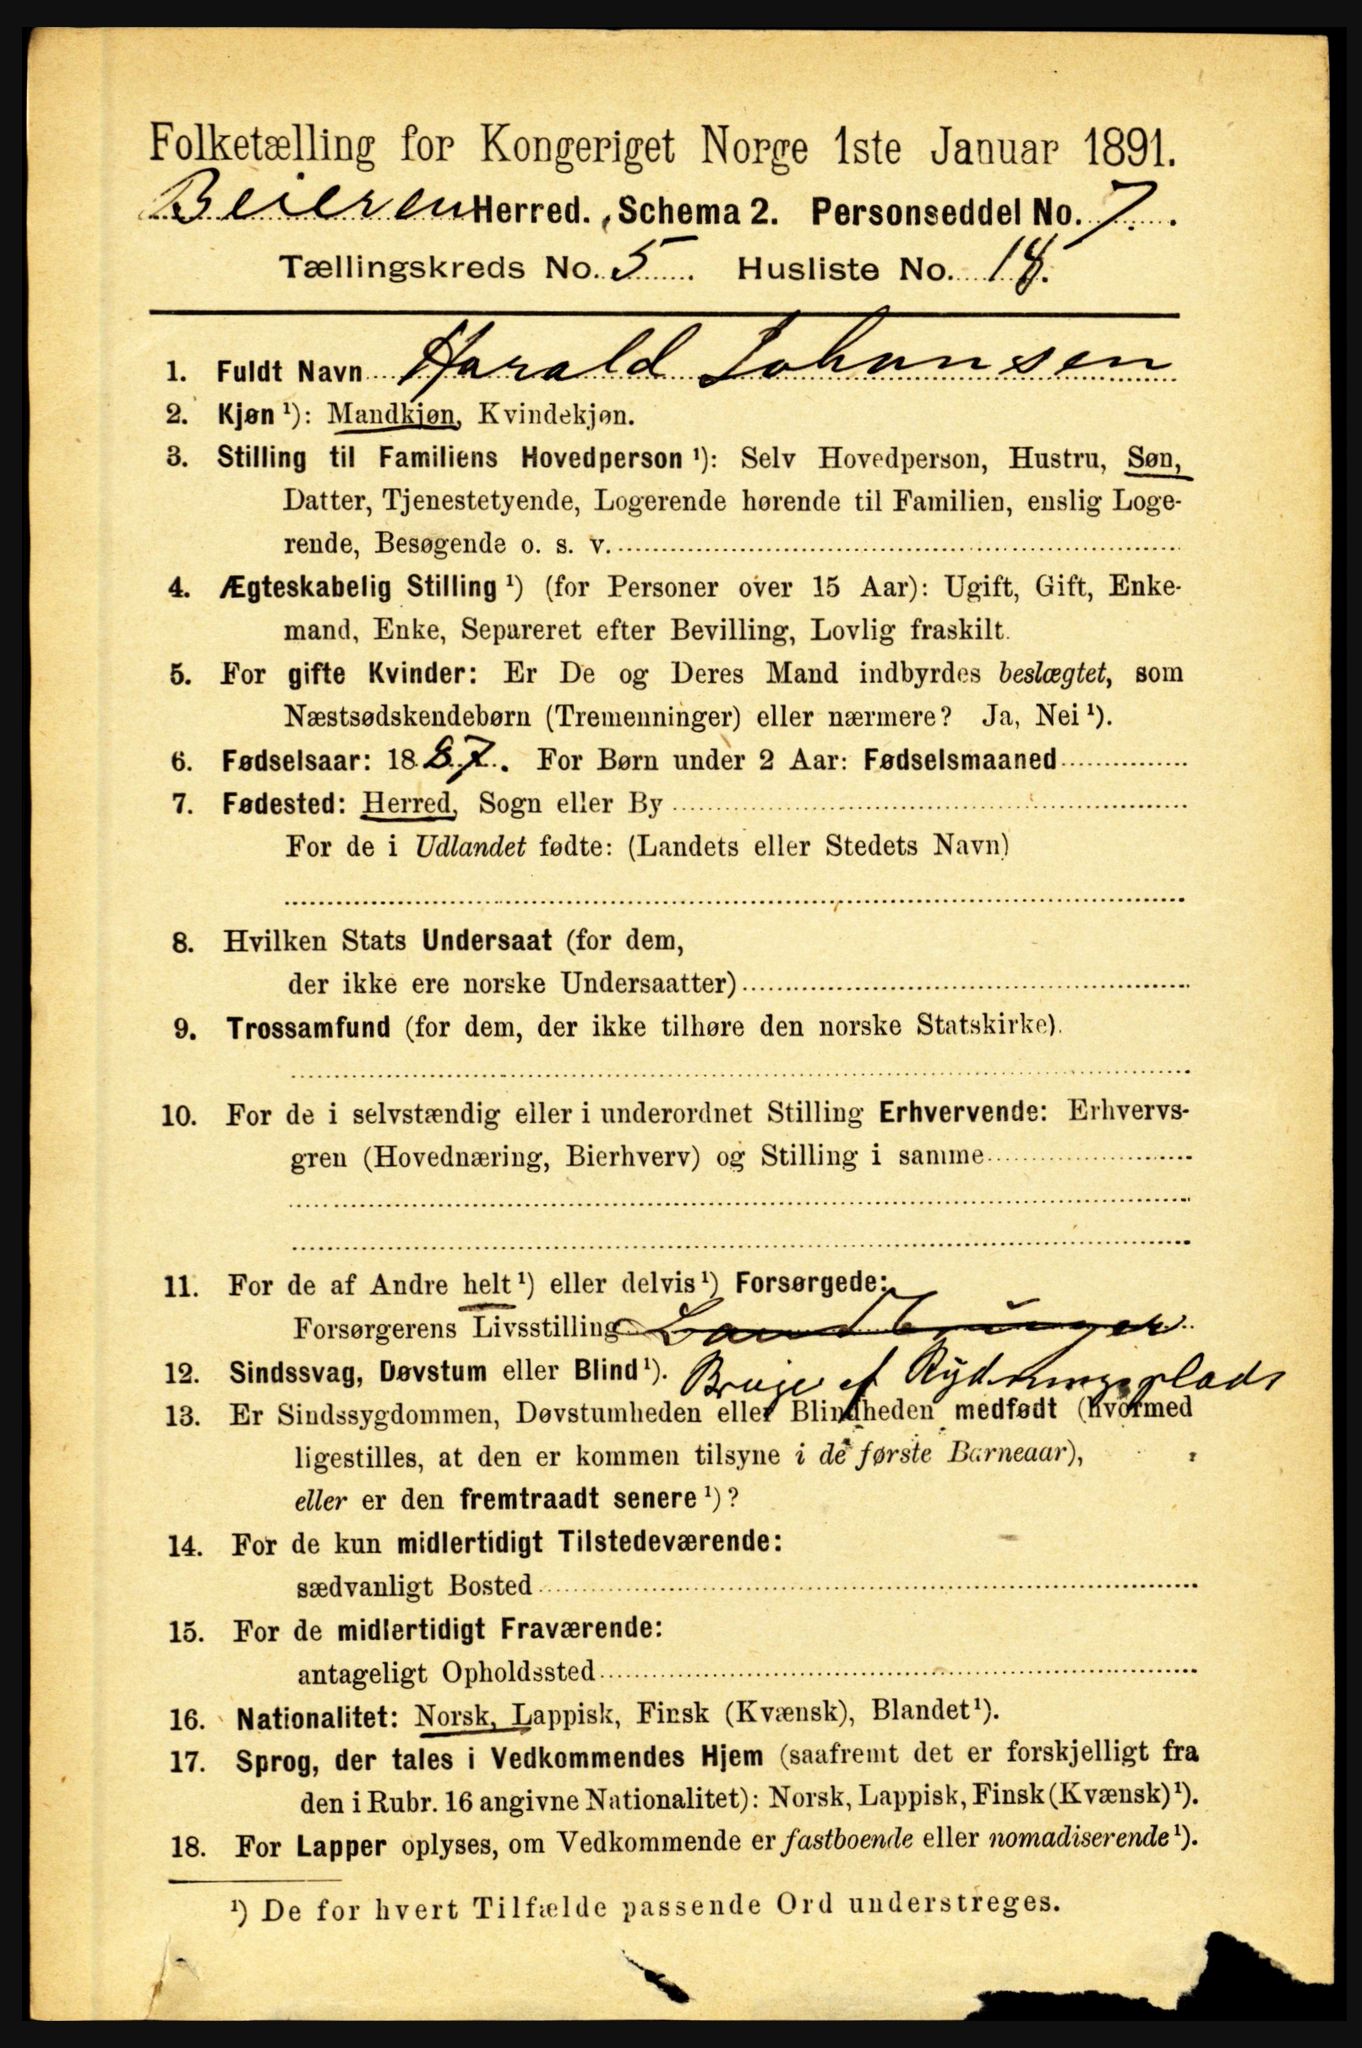 Folketælling for Kongeriget Norge 1ste Januar 1891.
Beieren Herred. Schema 2. Personseddel No. 7.
Tællingskreds No. 5. Husliste No. 18.
1. Fuldt Navn Harald Johansen
2. Kjøn ¹): Mandkjøn, Kvindekjøn.
3. Stilling til Familiens Hovedperson ¹): Selv Hovedperson, Hustru, Søn,
Datter, Tjenestetyende, Logerende hørende til Familien, enslig Loge-
rende, Besøgende o. s. v.
4. Ægteskabelig Stilling ¹) (for Personer over 15 Aar): Ugift, Gift, Enke-
mand, Enke, Separeret efter Bevilling, Lovlig fraskilt.
5. For gifte Kvinder: Er De og Deres Mand indbyrdes beslægtet, som
Næstsødskendebørn (Tremenninger) eller nærmere? Ja, Nei ¹).
6. Fødselsaar: 1887. For Børn under 2 Aar: Fødselsmaaned
7. Fødested: Herred, Sogn eller By
For de i Udlandet fødte: (Landets eller Stedets Navn)
8. Hvilken Stats Undersaat (for dem,
der ikke ere norske Undersaatter)
9. Trossamfund (for dem, der ikke tilhøre den norske Statskirke).
10. For de i selvstændig eller i underordnet Stilling Erhvervende: Erhvervs-
gren (Hovednæring, Bierhverv) og Stilling i samme
11. For de af Andre helt ¹) eller delvis ¹) Forsørgede:
Forsørgerens Livsstilling
12. Sindssvag, Døvstum eller Blind ¹). Bruger af Rydningsplads
13. Er Sindssygdommen, Døvstumheden eller Blindheden medfødt (hvormed
ligestilles, at den er kommen tilsyne i de første Barneaar),
eller er den fremtraadt senere ¹)?
14. For de kun midlertidigt Tilstedeværende:
sædvanligt Bosted
15. For de midlertidigt Fraværende:
antageligt Opholdssted
16. Nationalitet: Norsk, Lappisk, Finsk (Kvænsk), Blandet ¹).
17. Sprog, der tales i Vedkommendes Hjem (saafremt det er forskjelligt fra
den i Rubr. 16 angivne Nationalitet): Norsk, Lappisk, Finsk (Kvænsk) ¹).
18. For Lapper oplyses, om Vedkommende er fastboende eller nomadiserende ¹).
¹) De for hvert Tilfælde passende Ord understreges.